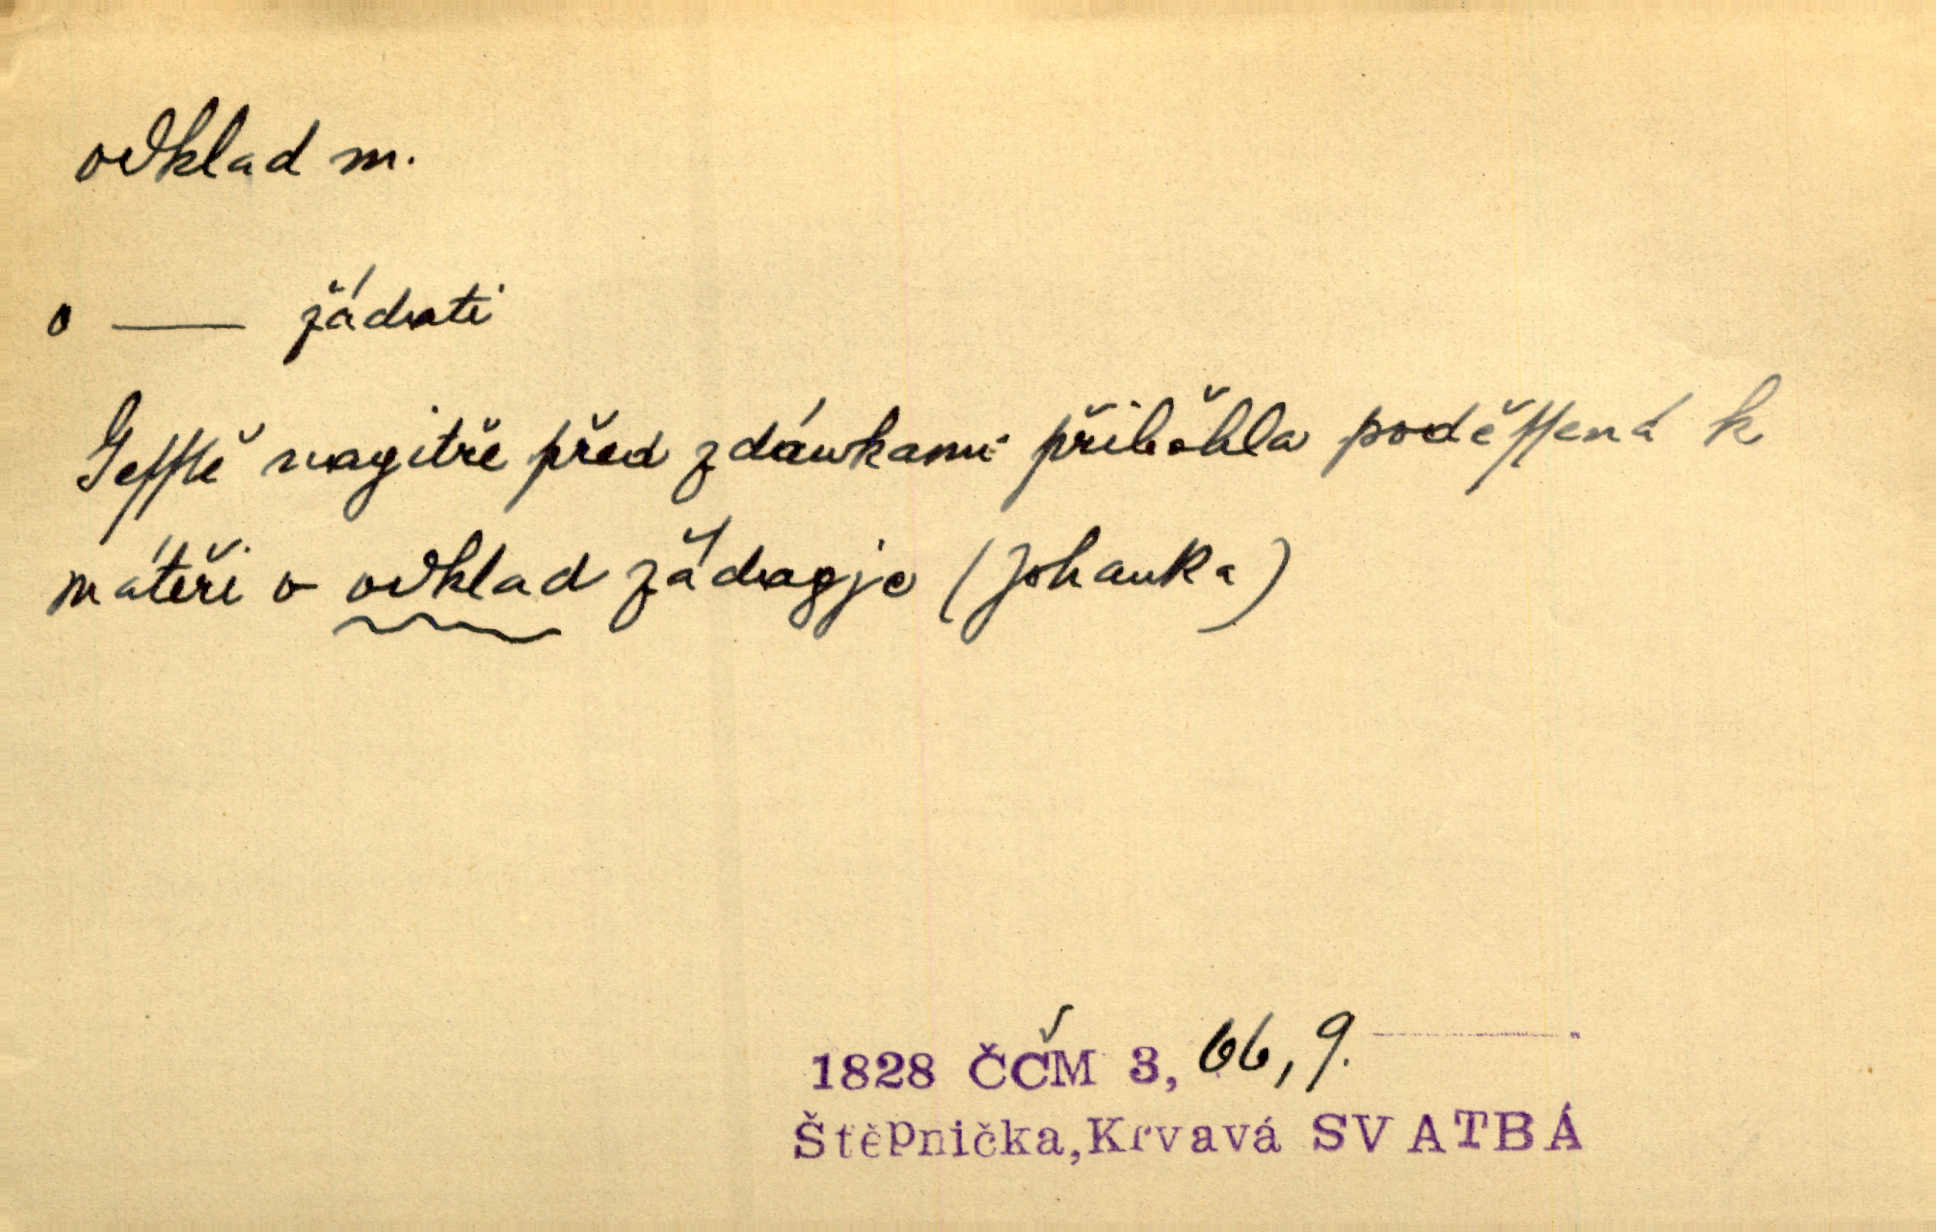 odklad m.
o — žádati
Gesstě nagitře před zdáwkami přiběhla poděssená k
máteři o odklad žádagje (Johanka)
1828 ČČM 3, 66, 9.
Štěpnička, Krvavá SVATBA